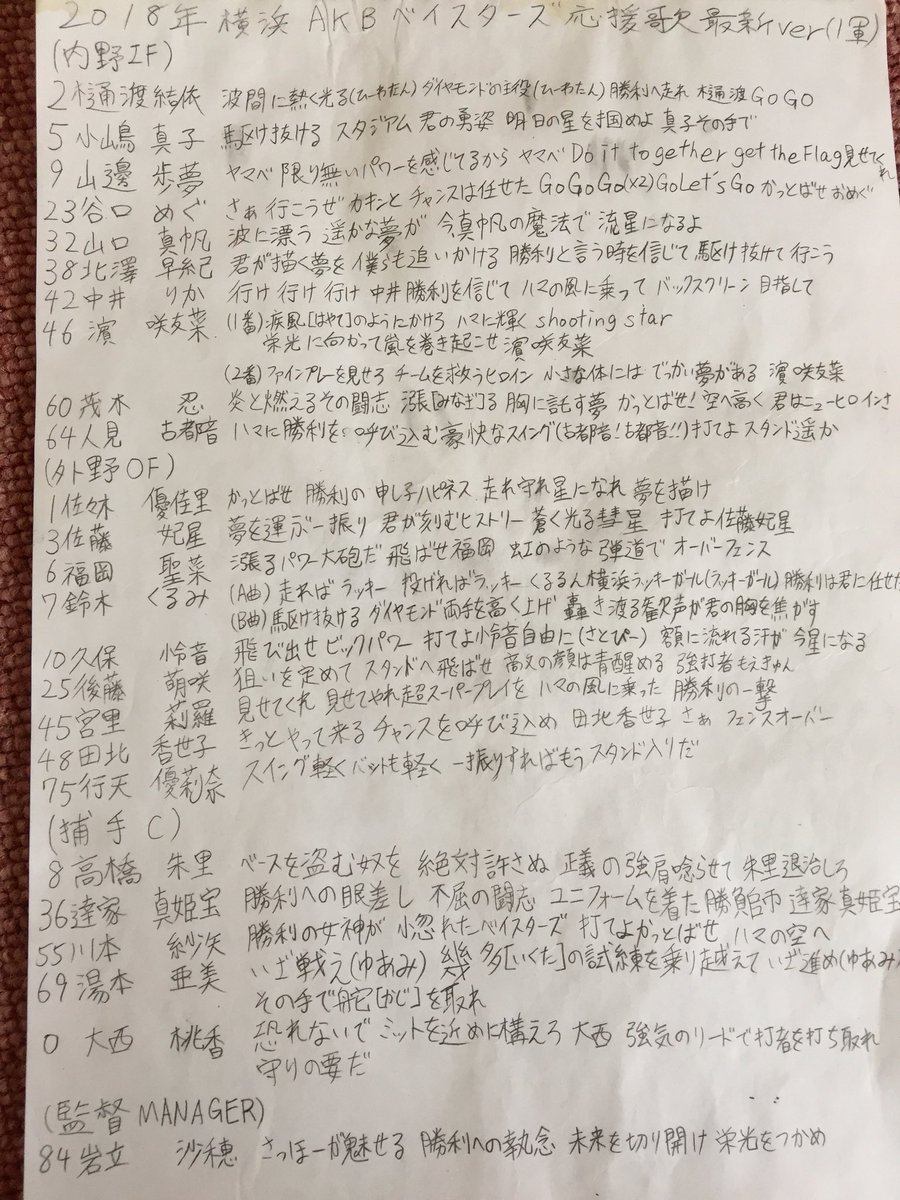 2018年 横浜 AKBベイスターズ 応援歌 最新ver(1軍)
(内野IF)
2樋渡結依 波間に熱く光る(ひーわたん) ダイヤモンドの主役(ひーわたん) 勝利へ走れ 樋渡GoGo
5 小嶋 真子 駆け抜ける スタジアム 君の勇姿 明日の星を掴めよ 真子その手で
9 山邊 歩夢 ヤマベ 限り無いパワーを感じてるから ヤマベ Do it together get the Flag見せてくれ
23谷口 めぐ さぁ 行こうぜ カキンと チャンスは任せた GoGoGo(x2)GoLet's Go かっとばせ おめぐ
32山口 真帆 波に漂う 遥かな夢が 今真帆の魔法で 流星になるよ
38北澤 早紀 君が描く夢を 僕らも追いかける 勝利と言う時を信じて 駆け抜けて行こう
42中井 りか 行け 行け 行け 中井勝利を信じて ハマの風に乗って バックスクリーン 目指して
46 濵 咲友菜 (1番)疾風[はやて]のようにかけろ ハマに輝く shooting star
栄光に向かって嵐を巻き起こせ 濵 咲友菜
(2番)ファインプレーを見せろ チームを救うヒロイン 小さな体には でっかい夢がある 濵 咲友菜
60茂木 忍 炎と燃えるその闘志 漲[みなぎ]る 胸に託す夢 かっとばせ! 空へ高く 君はニューヒロインさ
64人見 古都音 ハマに勝利を 呼び込む豪快なスイング(古都音!古都音!!)打てよ スタンド遥か
(外野OF)
1佐々木 優佳里 かっとばせ 勝利の 申し子ハピネス 走れ守れ星になれ 夢を描け
3佐藤 妃星 夢を運ぶ一振り 君が刻むヒストリー 蒼く光る彗星 打てよ佐藤妃星
6福岡 聖菜 漲るパワー大砲だ 飛ばせ福岡 虹のような弾道で オーバーフェンス
7鈴木 くるみ (A曲) 走れば ラッキー 投げればラッキー くるるん横浜ラッキーガール(ラッキーガール) 勝利は君に任せた
(B曲)駆け抜ける ダイヤモンド両手を高く上げ 轟き渡る歓声が君の胸を焦がす
10久保 怜音 飛び出せ ビックパワー 打てよ怜音自由に(さとぴー) 額に流れる汗が 今星になる
25後藤 萌咲 狙いを定めて スタンドへ飛ばせ 高文の顔は青醒める 強打者もえきゅん
45宮里 莉羅 見せてくれ 見せてやれ超スーパープレイを ハマの風に乗った 勝利の一撃
48田北 香世子 きっとやって来る チャンスを呼び込め 田北香世子 さぁ フェンスオーバー
75行天 優莉奈 スイング軽く バットも軽く 一振りすればもう スタンド入りだ
(捕手C)
8高橋 朱里 ベースを盗む奴を 絶対許さぬ 正義の強肩唸らせて 朱里退治しろ
36達家 真姫宝 勝利への眼差し 不屈の闘志 ユニフォームを着た勝負師 達家真姫宝
55川本 紗矢 勝利の女神が 小惚れたベイスターズ 打てよかっとばせ ハマの空へ
69湯本 亜美 いざ戦え(ゆあみ) 幾多[いくた]の試練を乗り越えて いざ進め(ゆあみ)
その手で舵[かじ]を取れ
0 大西 桃香 恐れないで ミットを近めに構えろ 大西 強気のリードで打者を打ち取れ
守りの要だ
(監督MANAGER)
84岩立 沙穂 さっほーが魅せる 勝利への執念 未来を切り開け 栄光をつかめ